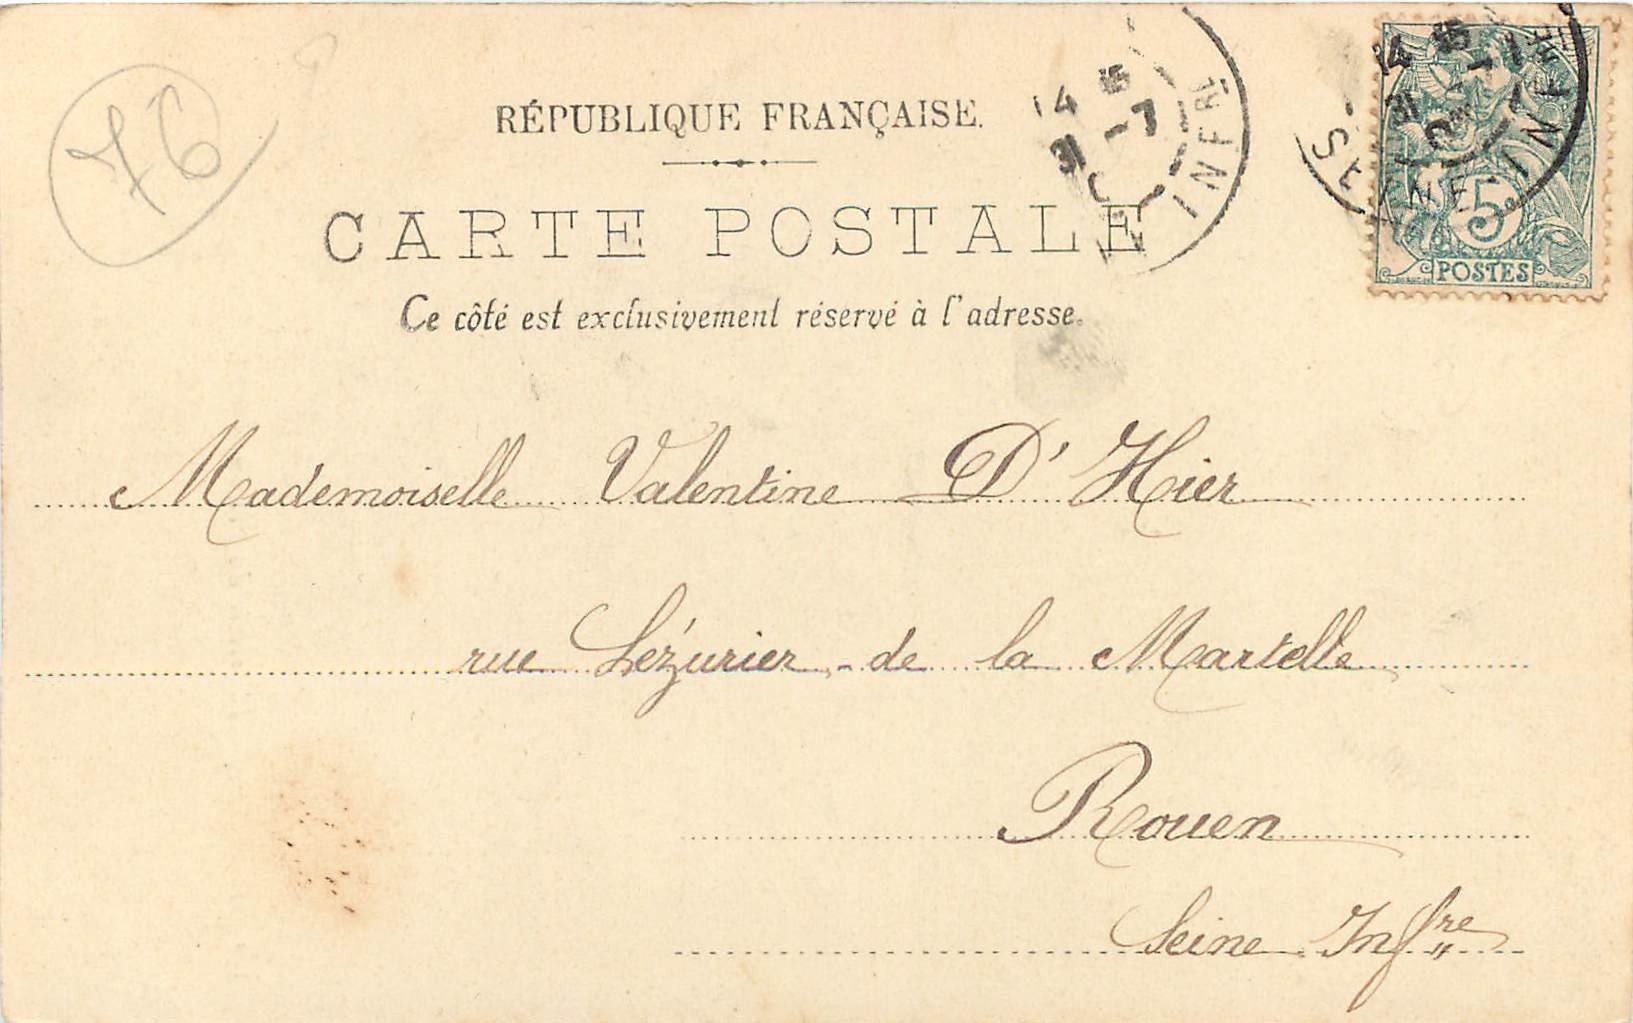 76
RÉPUBLIQUE FRANÇAISE.
CARTE POSTALE
Ce côté est exclusivement réservé à l'adresse.
14 15
31 -7
INFRE
14 15
31 -7
NE-INFRE
5c
POSTES
Mademoiselle Valentine D'Hier
rue Lézurier-de la Martelle
Rouen
Seine Infre